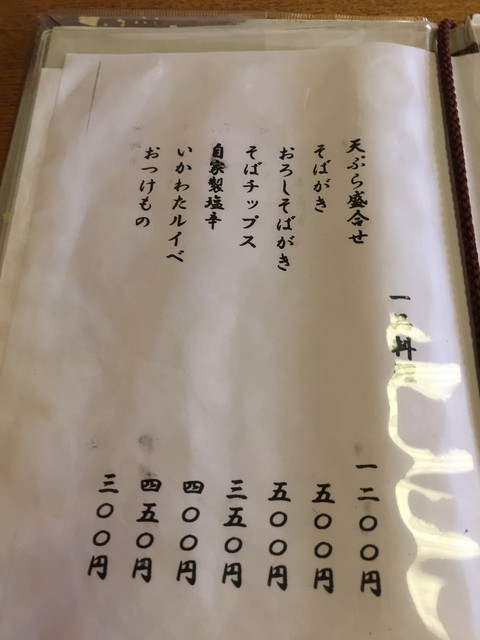 一品料理
天ぷら盛合せ 一二〇〇円
そばがき 五〇〇円
おろしそばがき 五〇〇円
そばチップス 三五〇円
自家製塩辛 四〇〇円
いかわたルイベ 四五〇円
おつけもの 三〇〇円